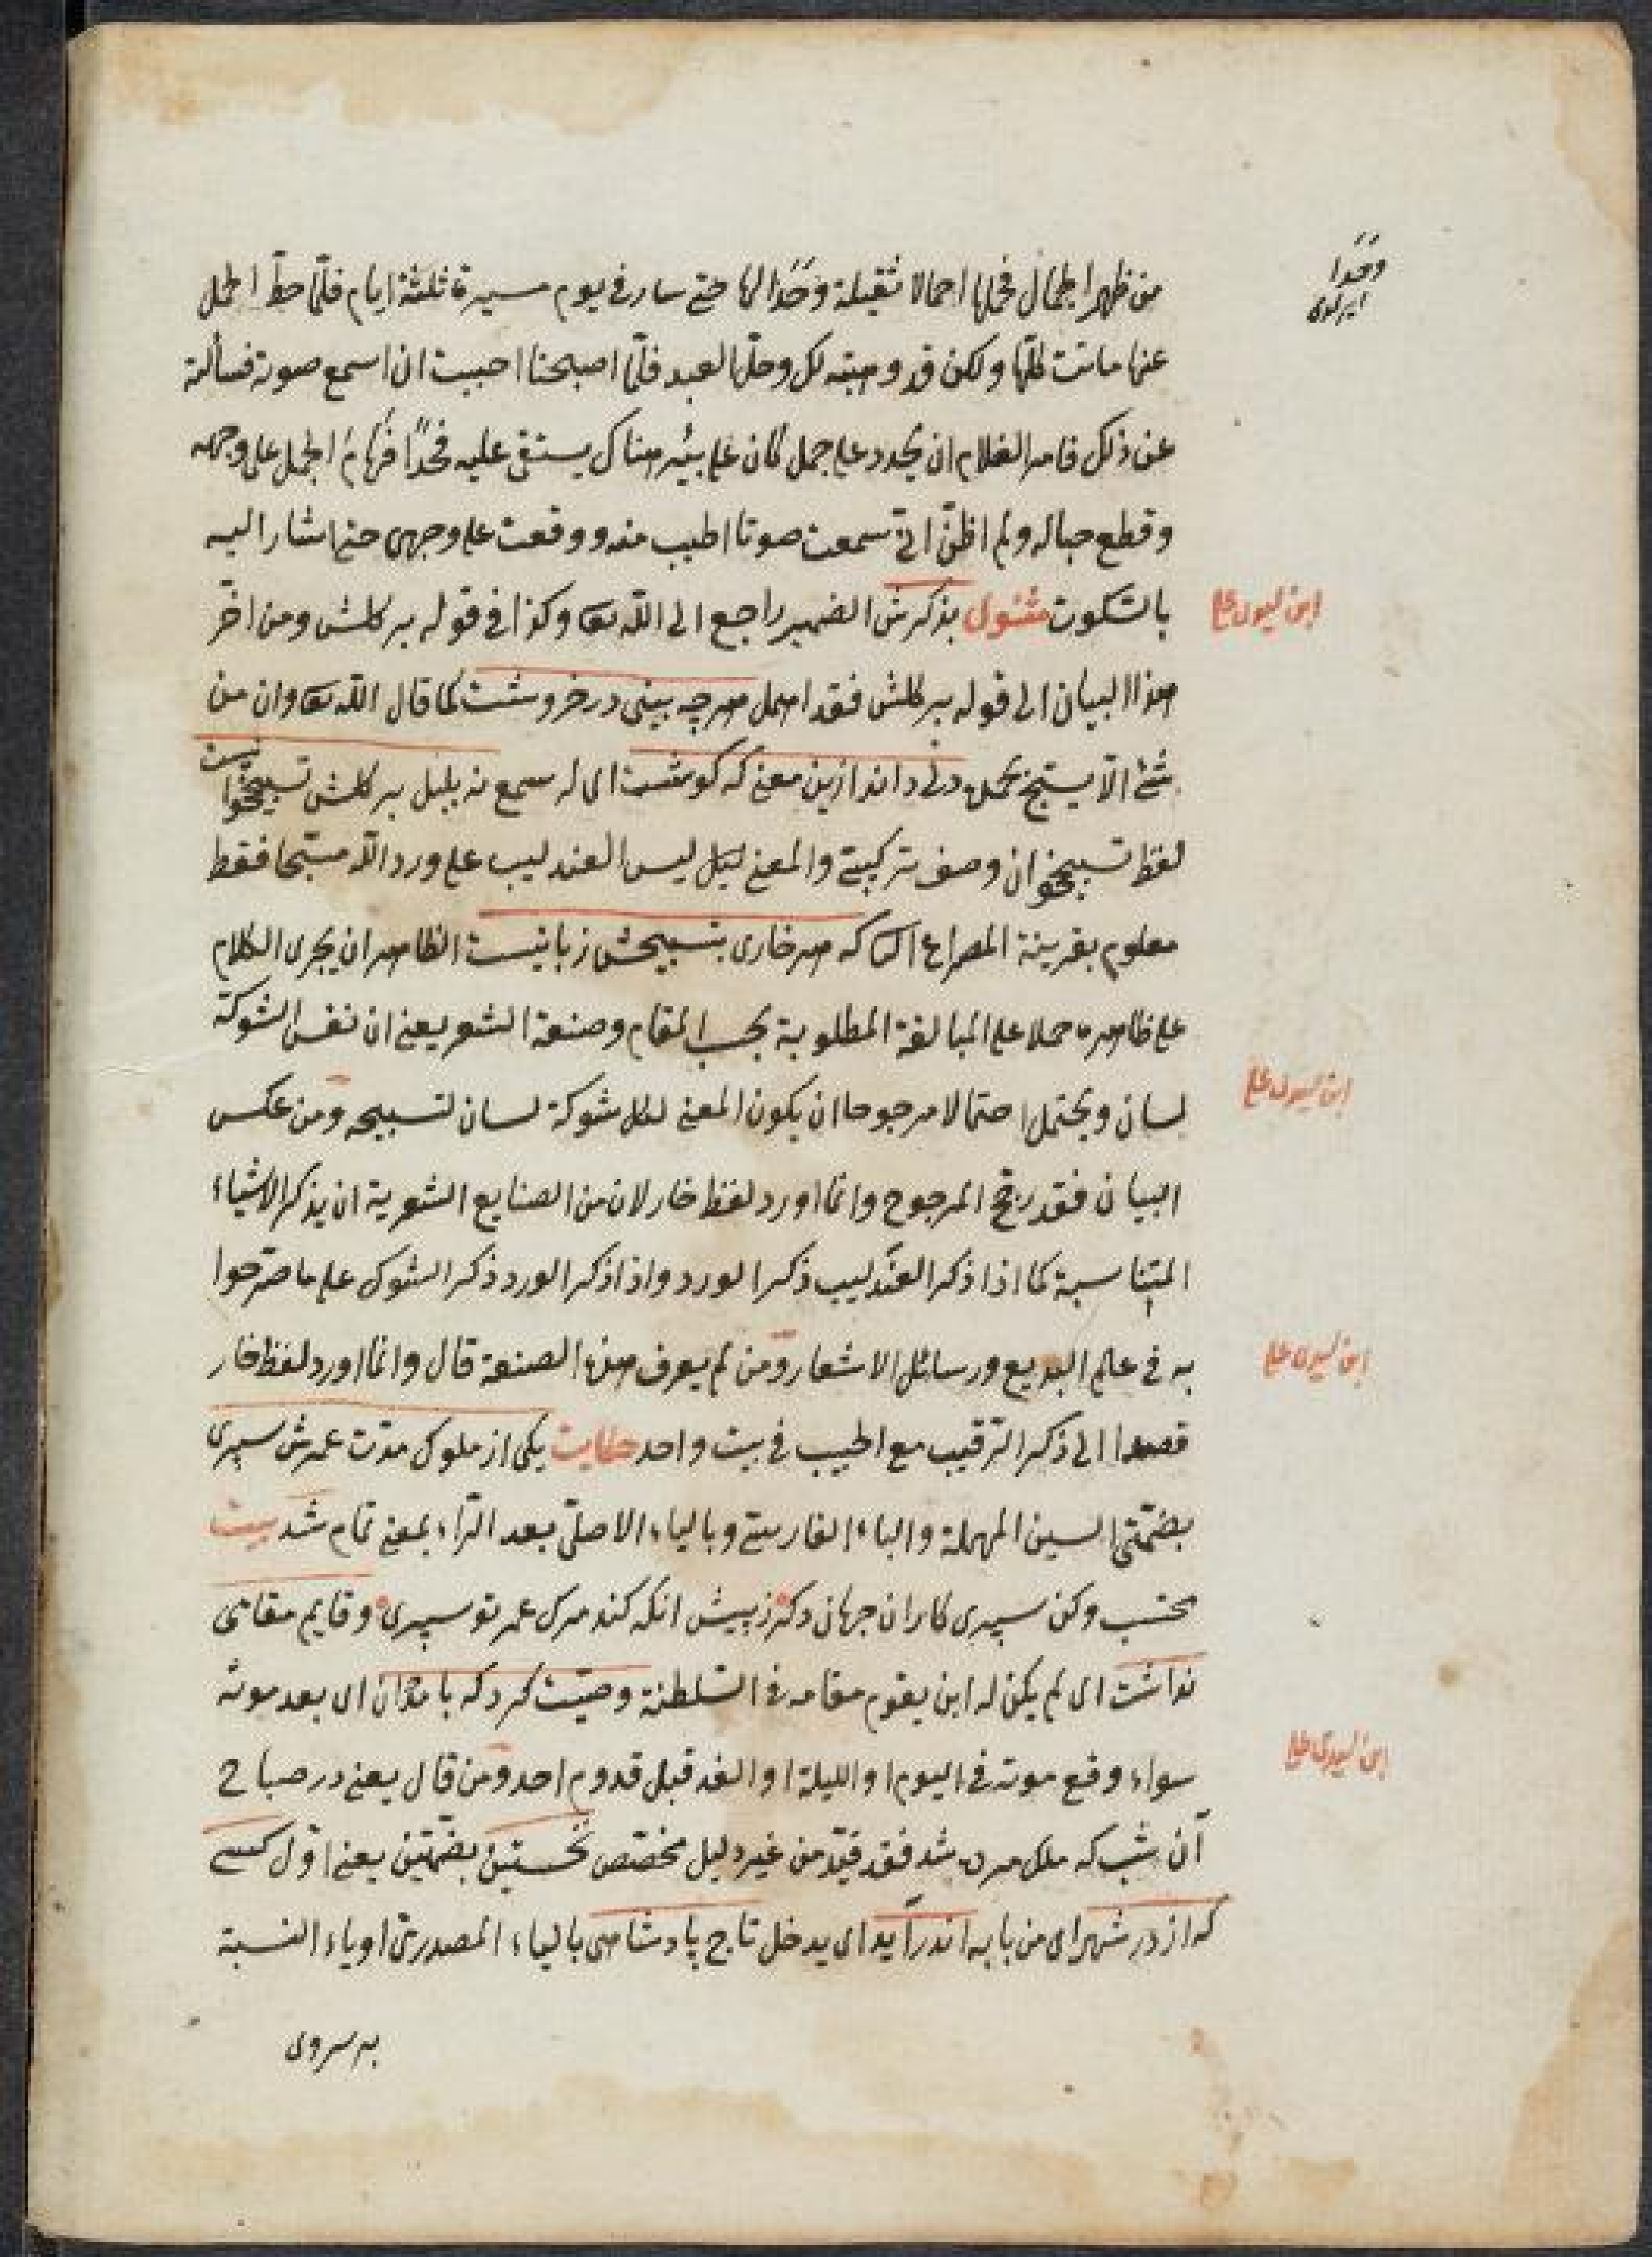 من ظهر الجمال فحملها احمالا ثقيلة وحَدَا لها حتى سار في يوم مسيرة ثلثة ايام فلمّا حطّ الحمل
عنها ماتت كلّها ولكن قد وهبته لك وحلّ العبد فلمّا اصبحنا احببت ان اسمع صوته فسألته
عن ذلك فامر الغلام ان يحدو على جمل كان على بئر هناك يستقى عليه فحدا فهام الجمل على وجهه
وقطع حباله ولم اظنّ انّى سمعت صوتا اطيب منه ووقعت على وجهى حتى اشار اليه
بالسّكوت مثنوى بذكرش الضمير راجع الى الله تعا وكذا فى قوله بر كلش ومن اخّر
هذا البيان الى قوله بر كلش فقد اهمل هرچه بينى در خروشست كما قال الله تعا وان من
شئ الّا يسبّح بحمده دلى داند ازين معنى كه كوشست اى له سمع نه بلبل بر كلش تسبيحخوانيست
لفظ تسبيحخوان وصف تركيبىّ والمعنى ليس العندليب على ورد الله مسبّحا فقط
معلوم بقرينة المصراع الثا كه هر خارى بتسبيحش زبانيست الظاهر ان يجرى الكلام
على ظاهره حملا على المبالغة المطلوبة بحسب المقام وصنعة الشعر يعنى ان نفس الشوكة
لسان ويحتمل احتمالا مرجوحا ان يكون المعنى لكل شوكة لسان لتسبيحه ومن عكس
البيان فقد رجّح المرجوح وانما اورد لفظ خار لان من الصنايع الشعرية ان يذكر الاشياء
المتناسبة كما اذا ذكر العندليب ذكر الورد واذا ذكر الورد ذكر الشوك على ما صرّحوا
به فى علم البديع ورسائل الاشعار ومن لم يعرف هذه الصنعة قال وانما اورد لفظ خار
قصدا الى ذكر الرّقيب مع الحبيب فى بيت واحد حكايت يكى از ملوك مدّت عمرش سپرى
بضمّتى السين المهملة والباء الفارسىّ وبالياء الاصلىّ بعد الرّاء بمعنى تمام شد بيت
مخسب وكن سپرى كامران جهان دكر ز پيش انكه كند مرك عمر تو سپرى وقايم مقامى
نداشت اى لم يكن له ابن يقوم مقامه فى السّلطنة وصيّت كرد كه بامدادان اى بعد موته
سواء وقع موته فى اليوم او الليلة او الغد قبل قدوم احد ومن قال يعنى در صباح
آن شب كه ملك مرده شد فقد قيّد من غير دليل مخصّص نخستين بضمّتين يعنى اوّل كسى
كه از در شهر اى من بابه اندر آيد اى يدخل تاج پادشاهى بالياء المصدرىّ او ياء النسبة
به سروى
وحَدا
ابن
ابن
ابن
ابن